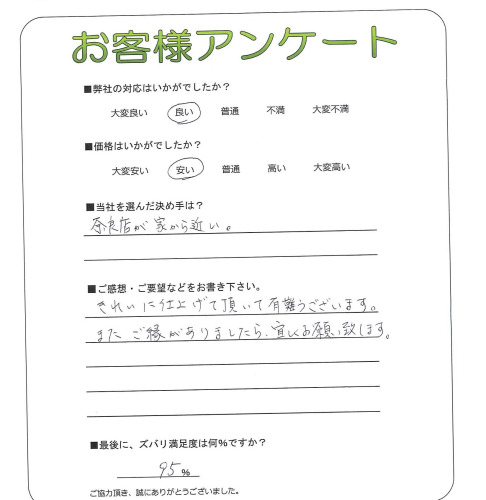 お客様アンケート
■弊社の対応はいかがでしたか？
大変良い 良い 普通 不満 大変不満
■価格はいかがでしたか？
大変安い 安い 普通 高い 大変高い
■当社を選んだ決め手は？
奈良店が家から近い。
■ご感想・ご要望などをお書き下さい。
きれいに仕上げて頂いて有難うございます。
またご縁がありましたら、宜しくお願い致します。
■最後に、ズバリ満足度は何%ですか？
95 %
ご協力頂き、誠にありがとうございました。